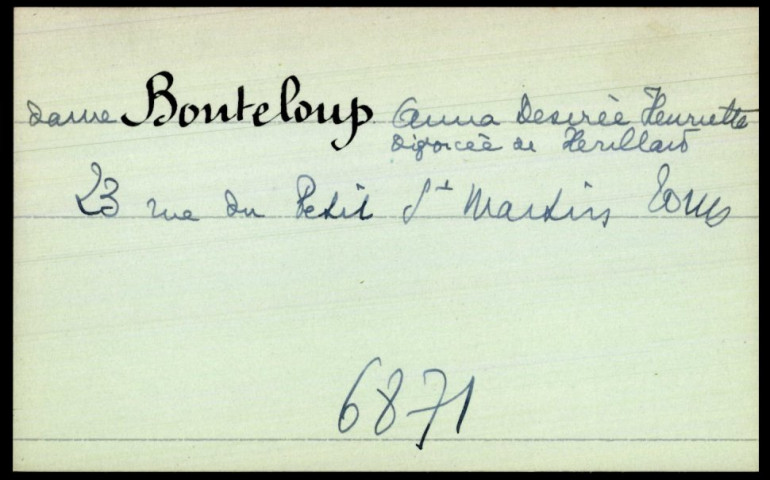 dame Bouteloup Anna Desirée Henriette
divorcée de Herillard
23 rue du Petit St Martin Tours
6871